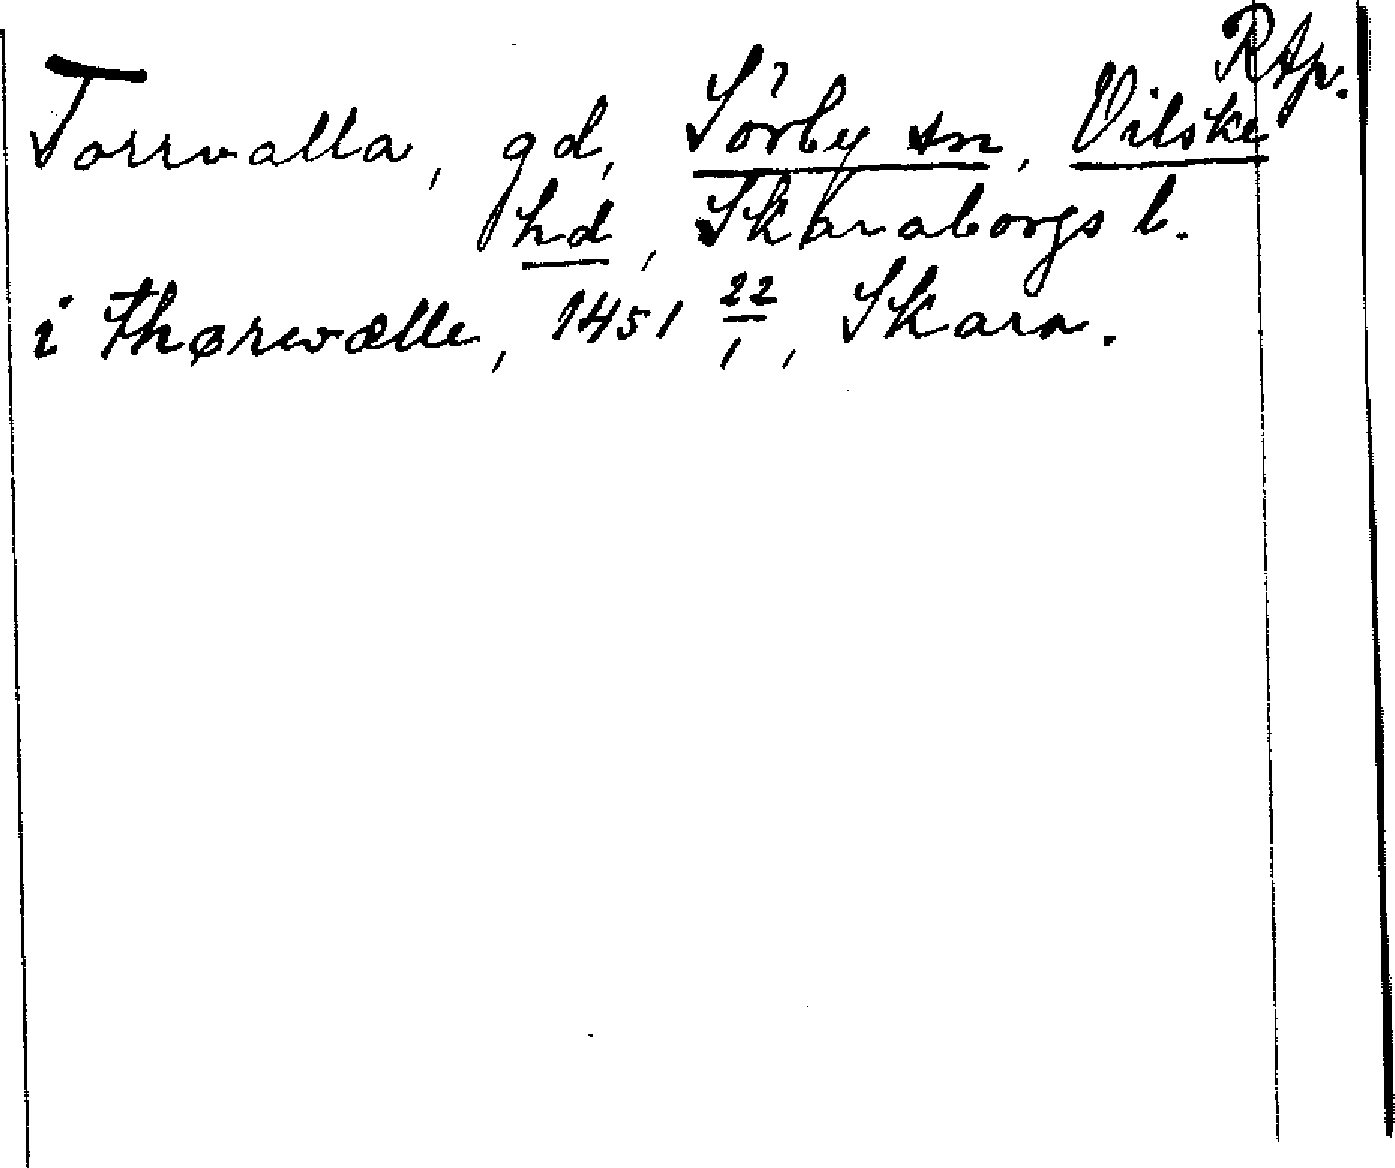 RAp.
Torrvalla, gd, Sörby sn, Vilske
hd, Skaraborgs l.
i thørwælle, 1451 22/1, Skara.